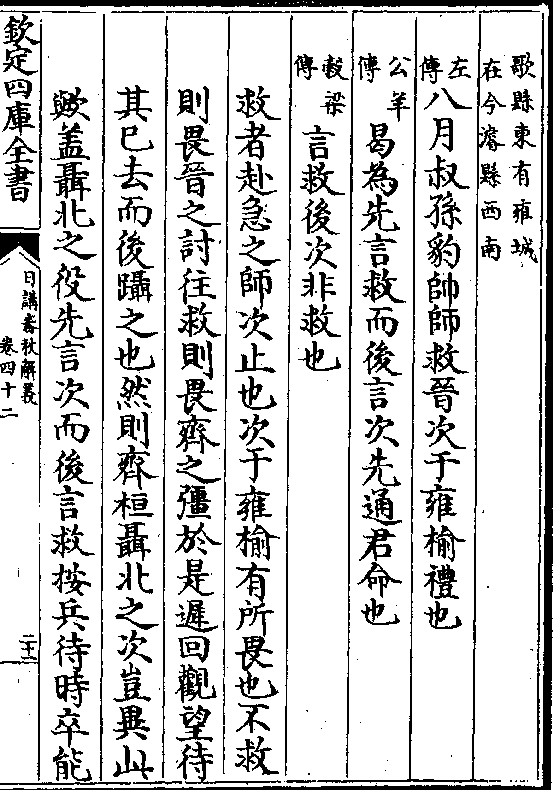 歌縣東有雍城
在今濬縣西南
左傳八月叔孫豹帥師救晉次于雍榆禮也
公羊傳曷為先言救而後言次先通君命也
穀梁傳言救後次非救也
救者赴急之師次止也次于雍榆有所畏也不救
則畏晉之討往救則畏齊之彊於是遲回觀望待
其已去而後躡之也然則齊桓聶北之次豈異此
歟蓋聶北之役先言次而後言救按兵待時卒能
欽定四庫全書
日講春秋解義
卷四十二
二十三